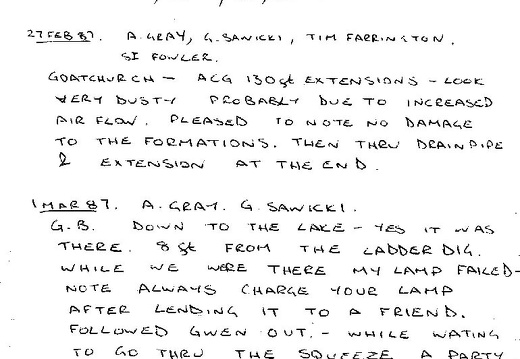 27 FEB 87. A. GRAY, G. SAWICKI, TIM FARRINGTON.
SI FOWLER.
GOATCHURCH - ACG 130 gt EXTENSIONS - LOOK
VERY DUSTY PROBABLY DUE TO INCREASED
AIR FLOW. PLEASED TO NOTE NO DAMAGE
TO THE FORMATIONS. THEN THRU DRAINPIPE
& EXTENSION AT THE END.
1 MAR 87. A. GRAY. G. SAWICKI.
G.B. DOWN TO THE LAKE - YES IT WAS
THERE. 8 gt FROM THE LADDER DIG.
WHILE WE WERE THERE MY LAMP FAILED-
NOTE ALWAYS CHARGE YOUR LAMP
AFTER LENDING IT TO A FRIEND.
FOLLOWED GWEN OUT. - WHILE WATING
TO GO THRU THE SQUEEZE A PARTY